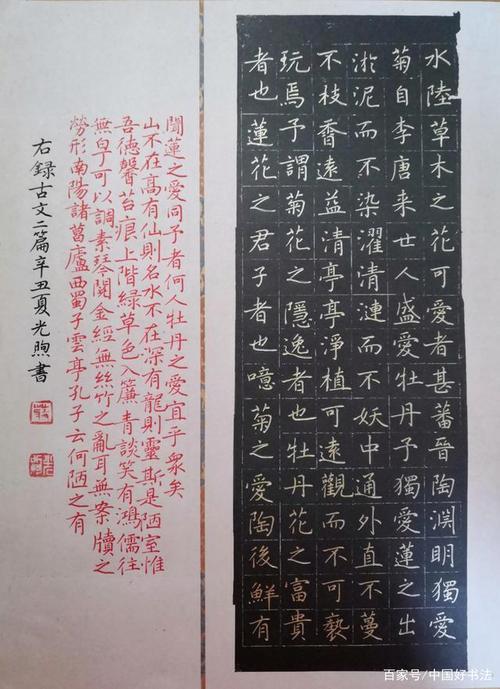 水陸草木之花可愛者甚蕃晉陶渊明獨愛
菊自李唐来世人盛愛牡丹予獨愛蓮之出
淤泥而不染濯清漣而不妖中通外直不蔓
不枝香遠益清亭亭淨植可遠觀而不可褻
玩焉予謂菊花之隱逸者也牡丹花之富貴
者也蓮花之君子者也噫菊之愛陶後鮮有
聞蓮之愛同予者何人牡丹之愛宜乎衆矣
山不在高有仙則名水不在深有龍則靈斯是陋室惟
吾德馨苔痕上階緑草色入簾青談笑有鴻儒往
無白丁可以調素琴閲金經無絲竹之亂耳無案牘之
勞形南陽諸葛廬西蜀子雲亭孔子云何陋之有
右録古文二篇辛丑夏光煦書
百家号/中国好书法